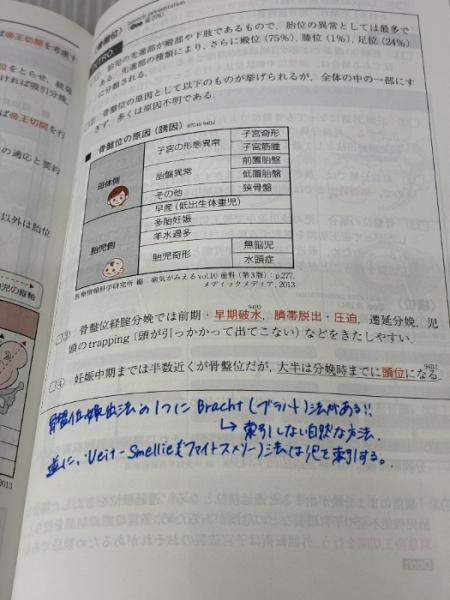 （骨盤位）
Breech presentation
胎児の先進部が殿部や下肢であるもので，胎位の異常としては最多で
ある．先進部の種類により，さらに殿位（75％），膝位（1％），足位（24％）
に分類される．
骨盤位の原因として以下のものが挙げられるが，全体の中の一部にす
ぎず，多くは原因不明である．
■ 骨盤位の原因（誘因）
母体側
子宮の形態異常
子宮奇形
子宮筋腫
胎盤異常
前置胎盤
低置胎盤
その他
狭骨盤
胎児側
早産（低出生体重児）
多胎妊娠
羊水過多
胎児奇形
無脳児
水頭症
医療情報科学研究所 編 病気がみえる vol.10 産科（第3版）：p.277，
メディックメディア，2013
□③ 骨盤位経腟分娩では前期・早期破水，臍帯脱出・圧迫，遷延分娩，児
頭のtrapping（頭が引っかかって出てこない）などをきたしやすい．
94D2
□④ 妊娠中期までは半数近くが骨盤位だが，大半は分娩時までに頭位になる．
骨盤位娩出法の1つにBracht(ブラハト)法がある!!
↳ 索引しない自然な方法.
逆に、Veit-Smellie(ファイトスメリー)法は児を索引する。
帝王切開を考慮す
位をとらせ，続発
ければ吸引分娩，
ば帝王切開を行
の適応と要約
以外は胎位
児の縦軸
2013